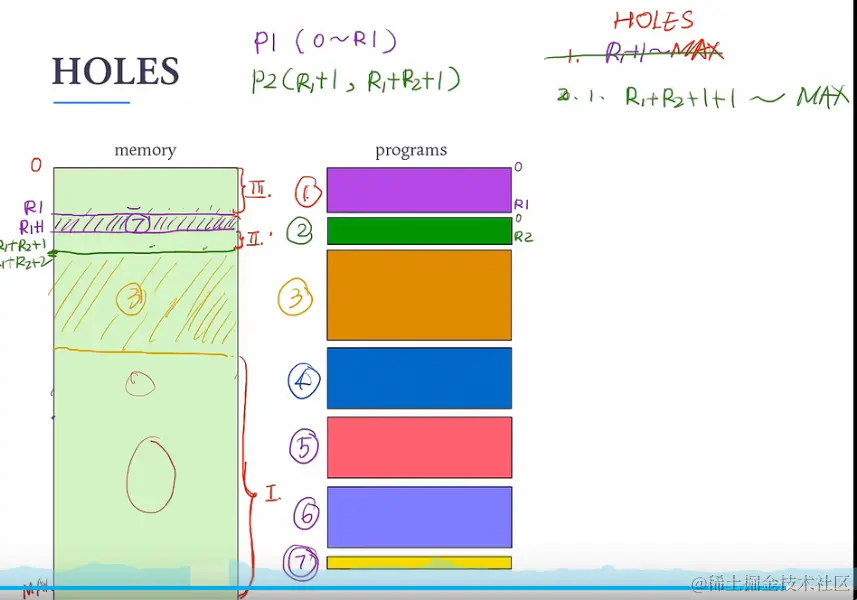 HOLES
P1 (0~R1)
P2(R1+1, R1+R2+1)
HOLES
1. R1+1~MAX
2. 1. R1+R2+1+1 ~ MAX
memory
programs
0
R1
R1+1
R1+R2+1
R1+R2+2
III.
II.
I.
7
3
MAX
1
2
3
4
5
6
7
0
R1
0
R2
@稀土掘金技术社区